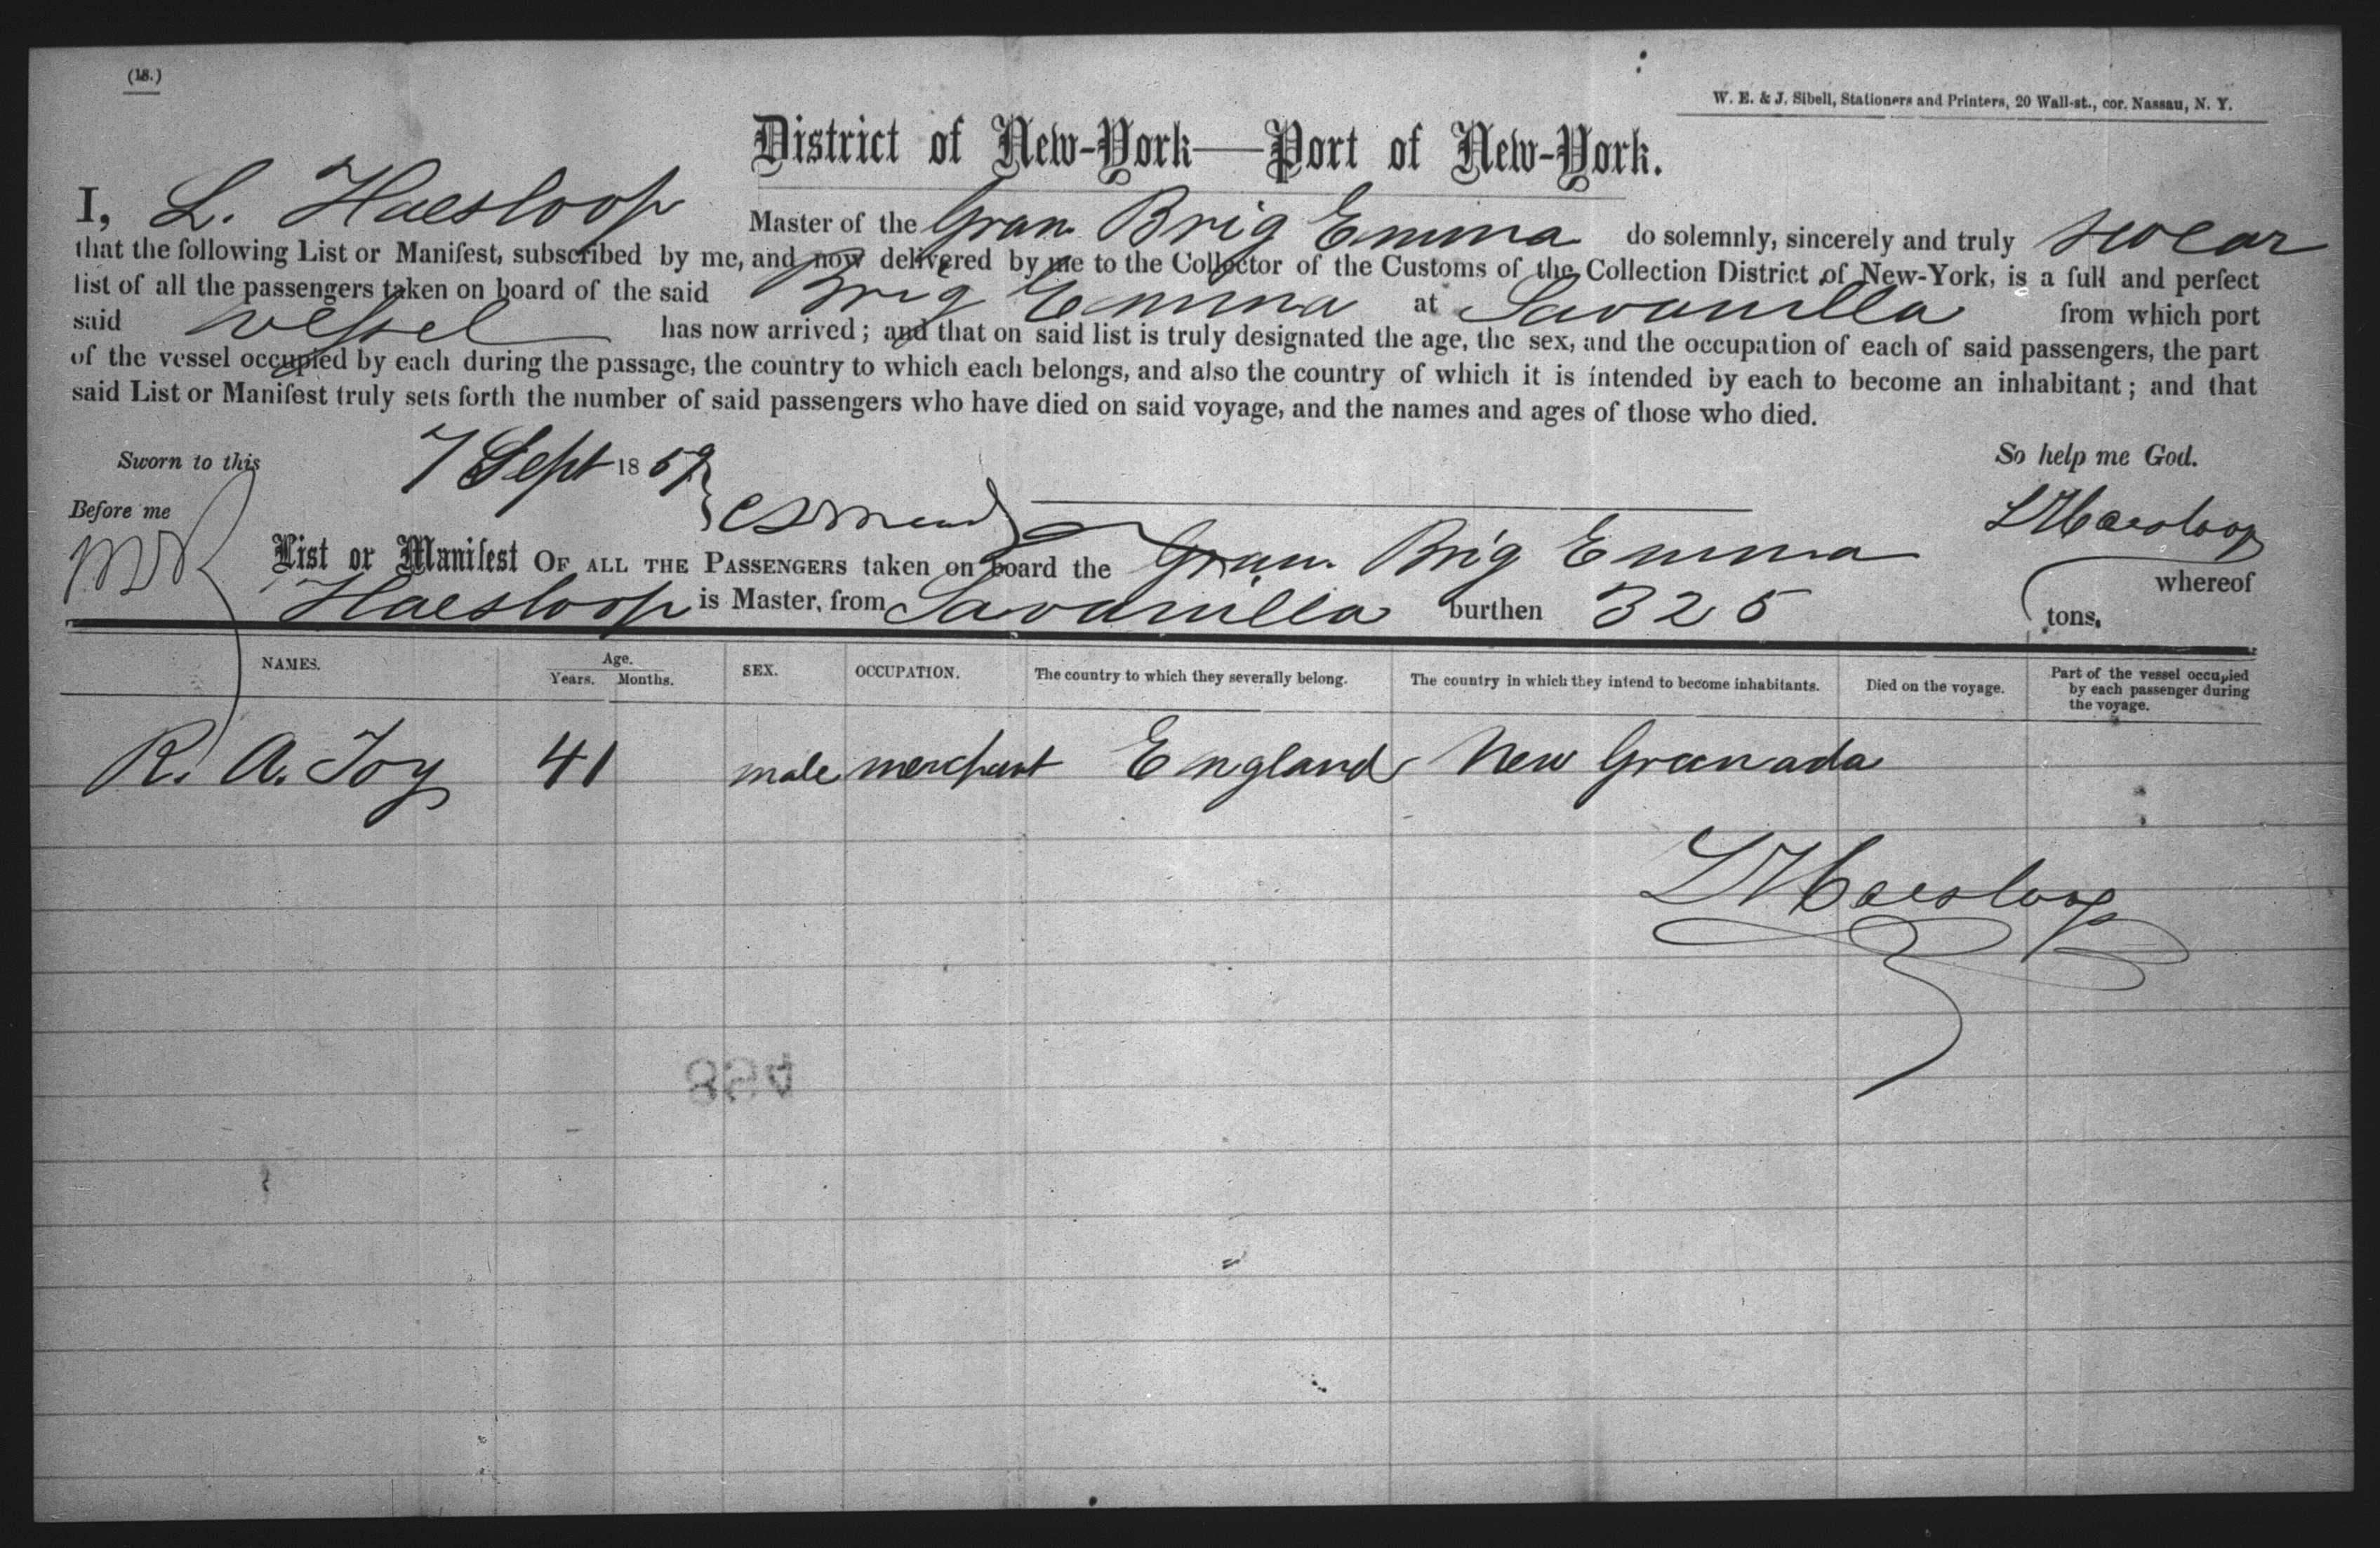 (18.)
W. E. & J. Sibell, Stationers and Printers, 20 Wall-st., cor. Nassau, N. Y.
District of New-York—Port of New-York.
I, L. Haesloop Master of the Gran. Brig Emma do solemnly, sincerely and truly swear
that the following List or Manifest, subscribed by me, and now delivered by me to the Collector of the Customs of the Collection District of New-York, is a full and perfect
list of all the passengers taken on board of the said Brig Emma at Savanilla from which port
said vessel has now arrived; and that on said list is truly designated the age, the sex, and the occupation of each of said passengers, the part
of the vessel occupied by each during the passage, the country to which each belongs, and also the country of which it is intended by each to become an inhabitant; and that
said List or Manifest truly sets forth the number of said passengers who have died on said voyage, and the names and ages of those who died.
Sworn to this 7 Sept 1859 So help me God.
Before me
L Haesloop
List or Manifest OF ALL THE PASSENGERS taken on board the Gran. Brig Emma whereof
Haesloop is Master, from Savanilla burthen 325 tons.
NAMES. Age. Years. Months. SEX. OCCUPATION. The country to which they severally belong. The country in which they intend to become inhabitants. Died on the voyage. Part of the vessel occupied by each passenger during the voyage.
R. A. Joy 41 male merchant England New Granada
L Haesloop